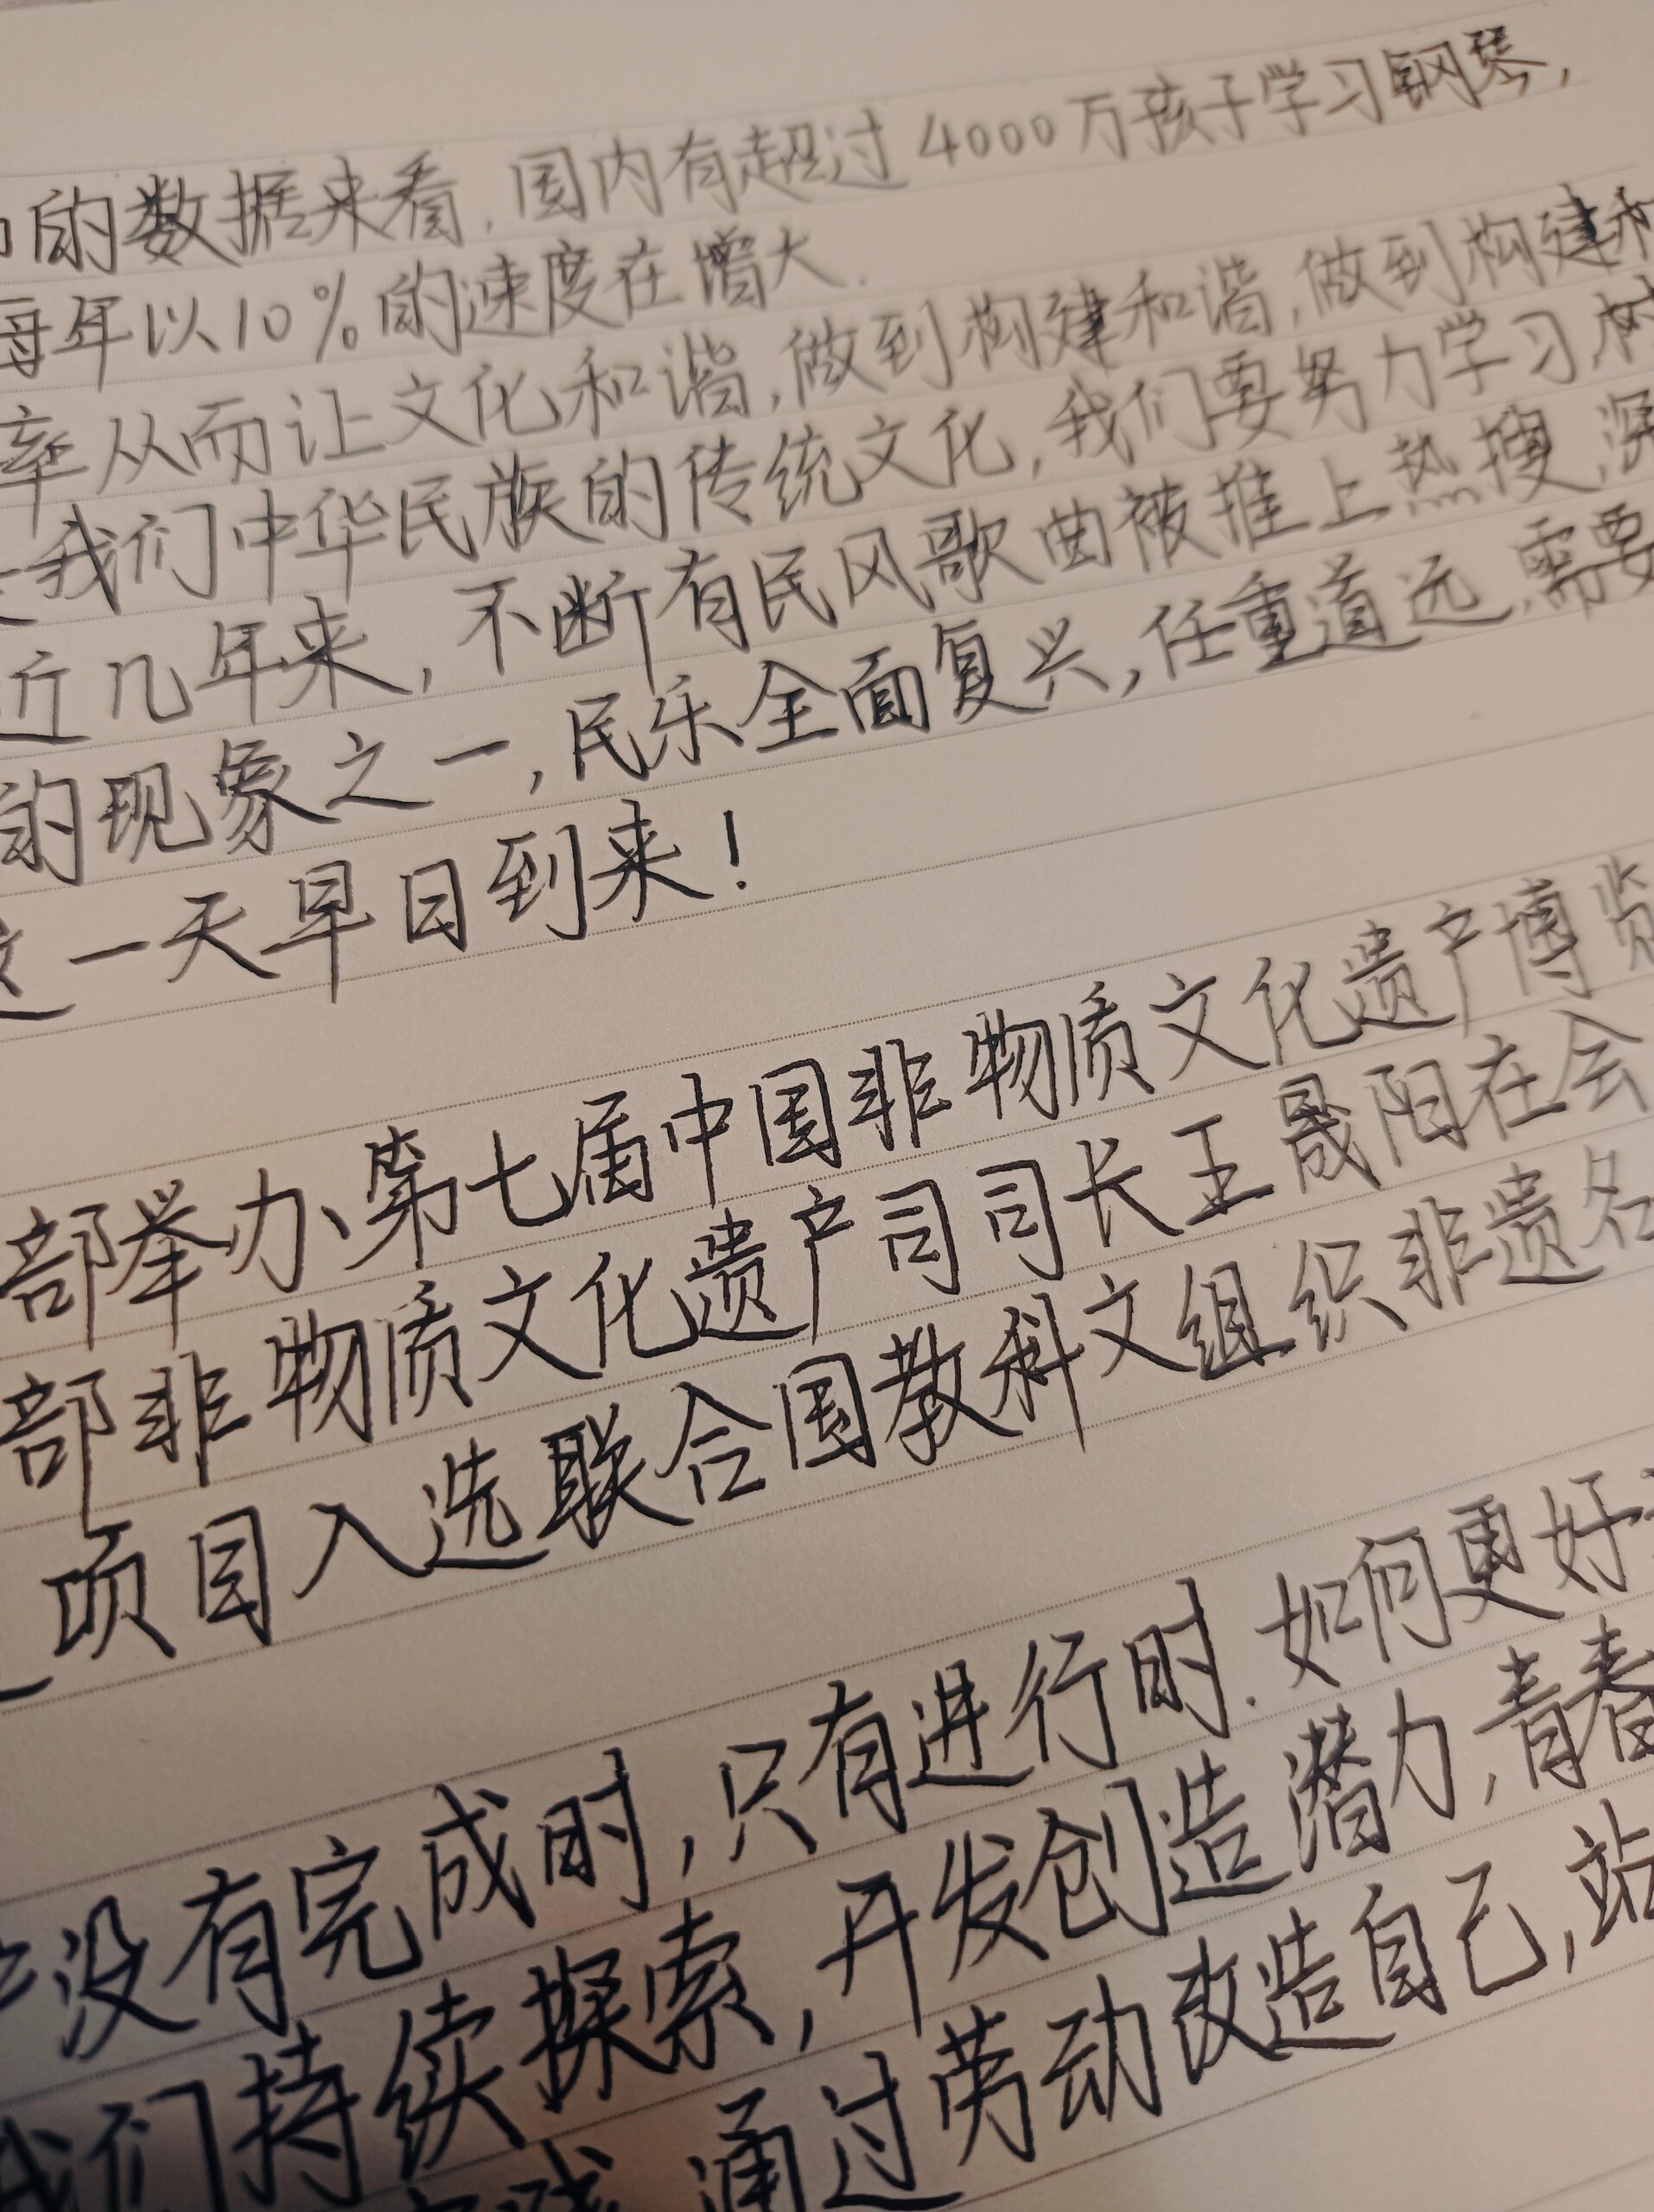 的数据来看，国内有超过4000万孩子学习钢琴，
每年以10%的速度在增大.
率从而让文化和谐,做到构建和谐,做到构建和
我们中华民族的传统文化,我们要努力学习,树
近几年来,不断有民风歌曲被推上热搜,深
的现象之一,民乐全面复兴,任重道远,需要
这一天早日到来!
部举办、第七届中国非物质文化遗产博览
部非物质文化遗产司司长王晟阳在会
项目入选联合国教科文组织非遗名
没有完成时,只有进行时.如何更好
我们持续探索,开发创造潜力,青春
通过劳动改造自己,站